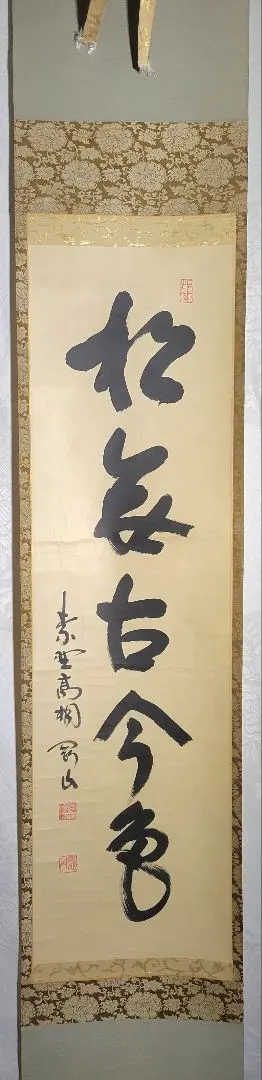 松無古今色
紫野高桐剛山